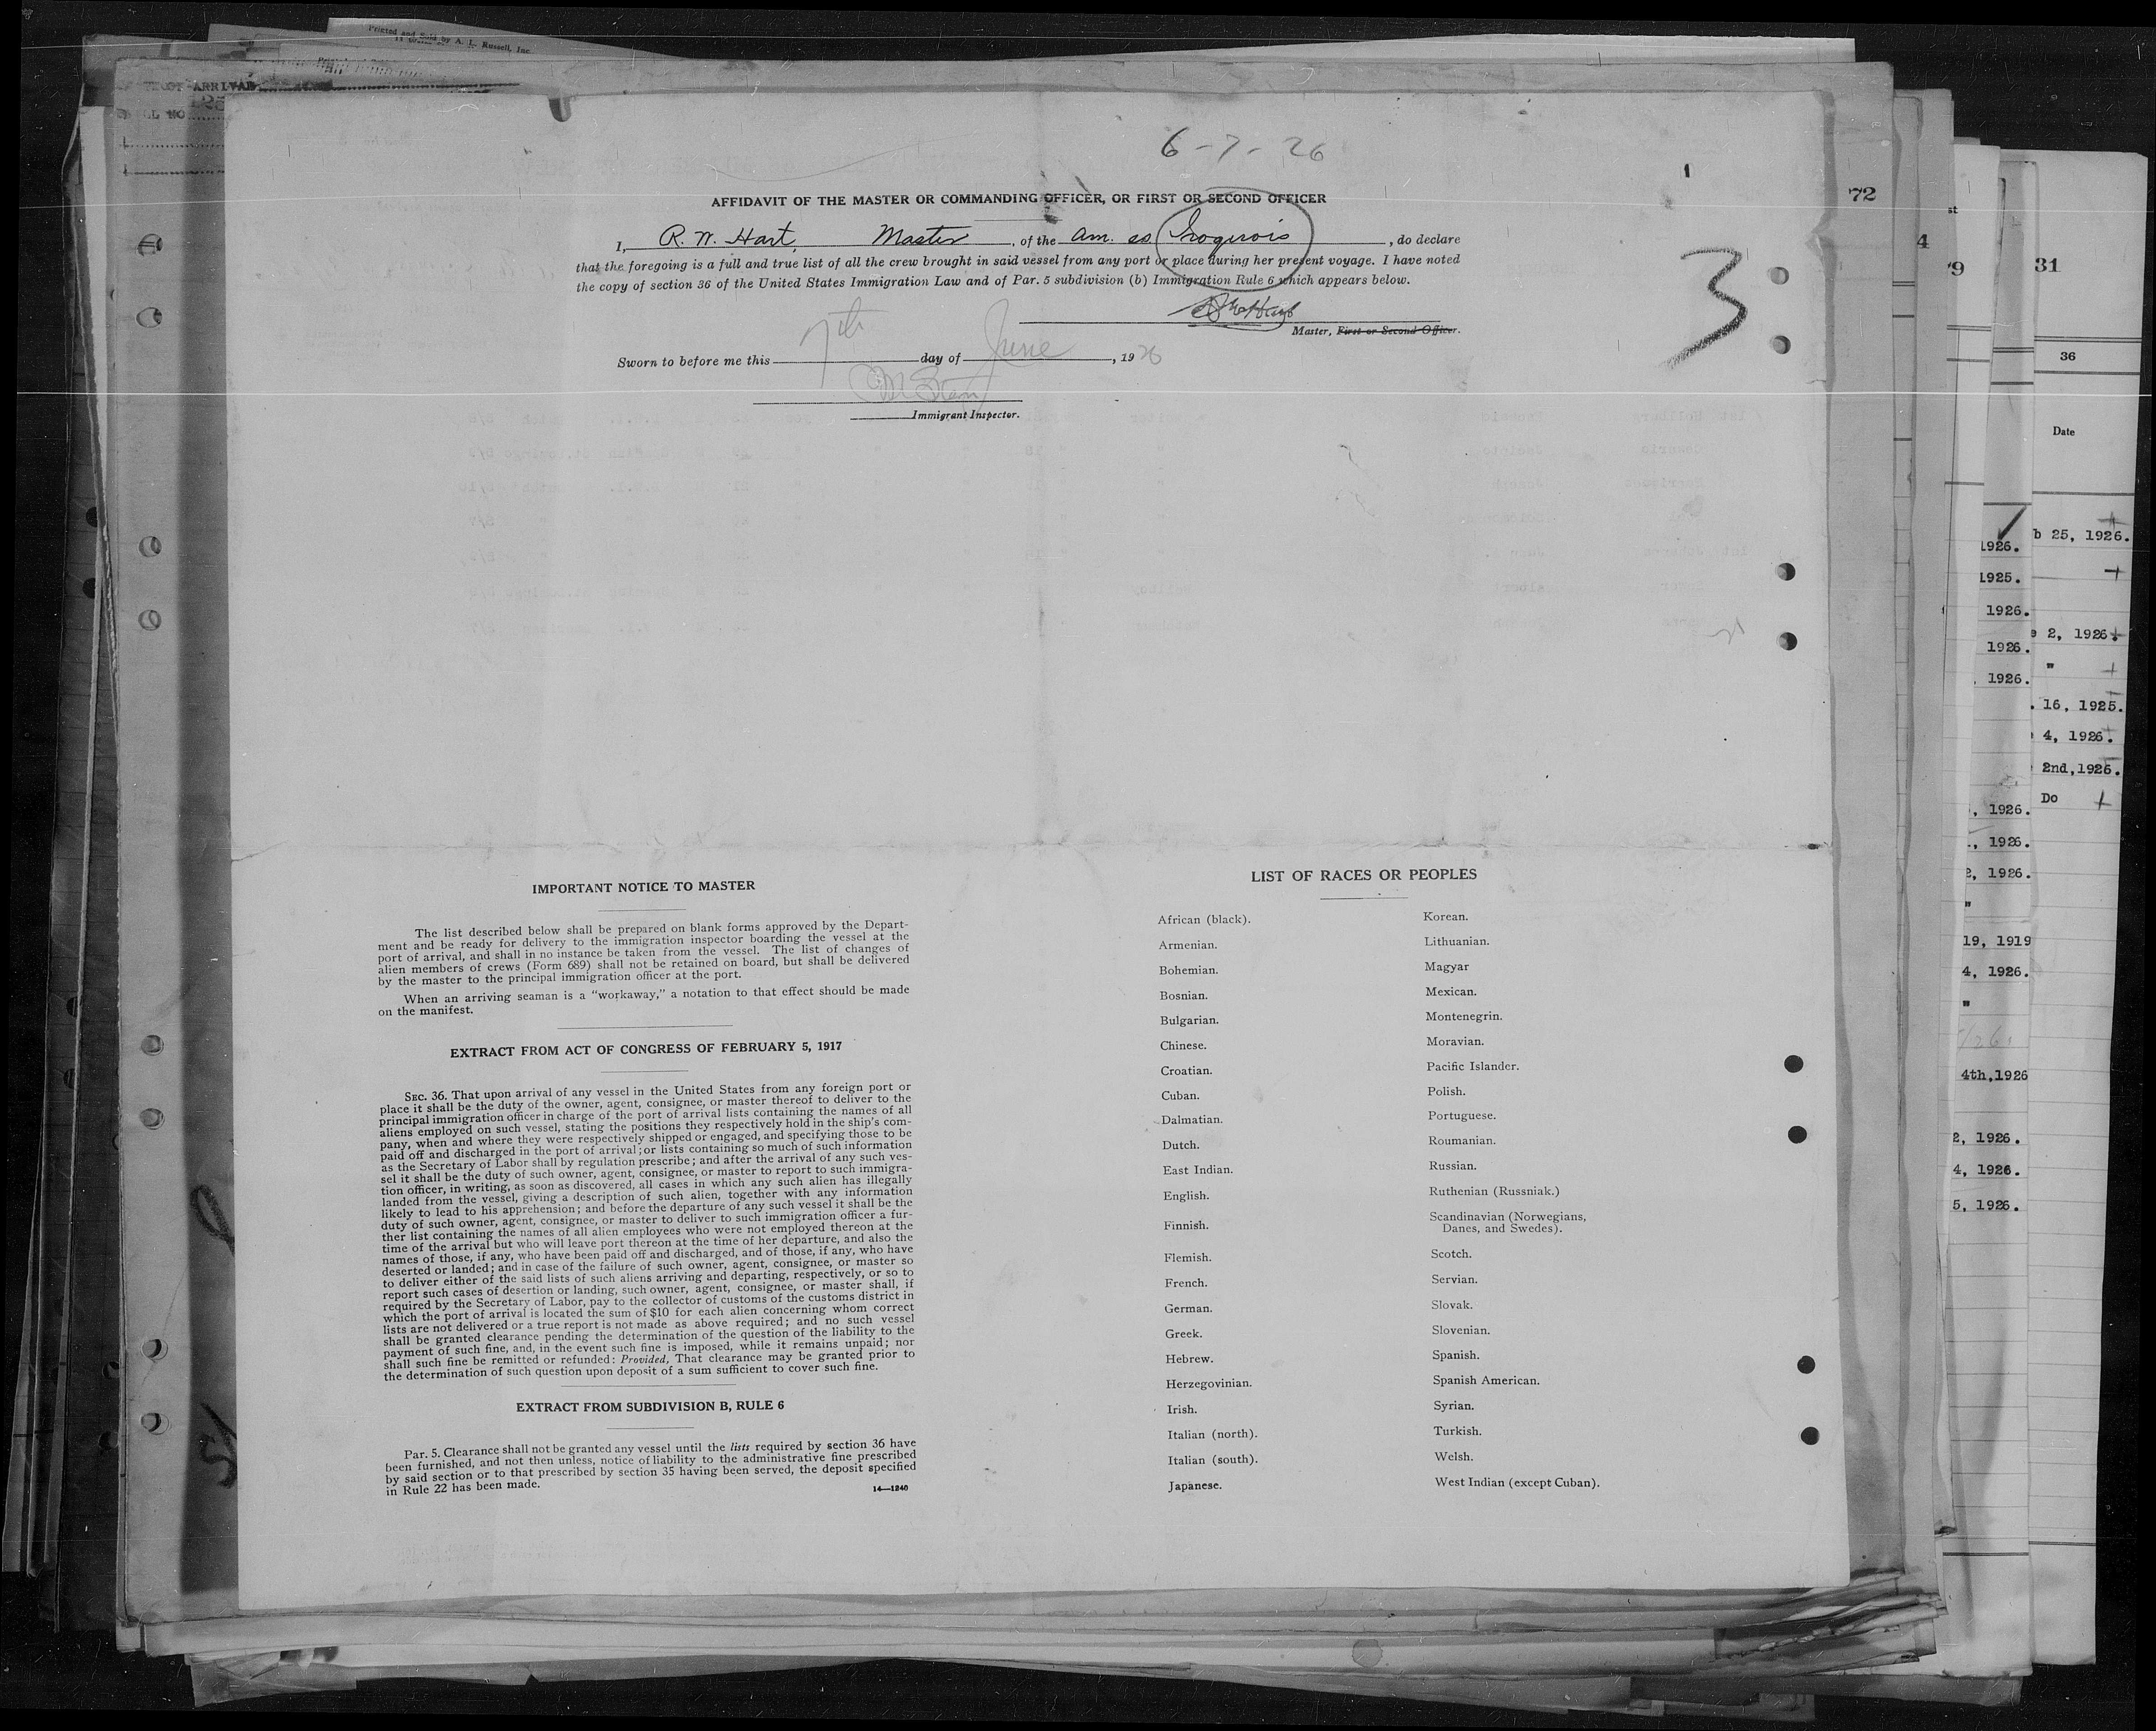 Printed and Sold by A. L. Russell, Inc.
ARRIVAL
6-7-26
1
72
AFFIDAVIT OF THE MASTER OR COMMANDING OFFICER, OR FIRST OR SECOND OFFICER
I, R. W. Hart, Master, of the Am. ss Iroquois, do declare
that the foregoing is a full and true list of all the crew brought in said vessel from any port or place during her present voyage. I have noted
the copy of section 36 of the United States Immigration Law and of Par. 5 subdivision (b) Immigration Rule 6 which appears below.
3
Master, First or Second Officer.
Sworn to before me this 7th day of June, 1926
Immigrant Inspector.
IMPORTANT NOTICE TO MASTER
The list described below shall be prepared on blank forms approved by the Depart-
ment and be ready for delivery to the immigration inspector boarding the vessel at the
port of arrival, and shall in no instance be taken from the vessel. The list of changes of
alien members of crews (Form 689) shall not be retained on board, but shall be delivered
by the master to the principal immigration officer at the port.
When an arriving seaman is a "workaway," a notation to that effect should be made
on the manifest.
EXTRACT FROM ACT OF CONGRESS OF FEBRUARY 5, 1917
SEC. 36. That upon arrival of any vessel in the United States from any foreign port or
place it shall be the duty of the owner, agent, consignee, or master thereof to deliver to the
principal immigration officer in charge of the port of arrival lists containing the names of all
aliens employed on such vessel, stating the positions they respectively hold in the ship's com-
pany, when and where they were respectively shipped or engaged, and specifying those to be
paid off and discharged in the port of arrival; or lists containing so much of such information
as the Secretary of Labor shall by regulation prescribe; and after the arrival of any such ves-
sel it shall be the duty of such owner, agent, consignee, or master to report to such immigra-
tion officer, in writing, as soon as discovered, all cases in which any such alien has illegally
landed from the vessel, giving a description of such alien, together with any information
likely to lead to his apprehension; and before the departure of any such vessel it shall be the
duty of such owner, agent, consignee, or master to deliver to such immigration officer a fur-
ther list containing the names of all alien employees who were not employed thereon at the
time of the arrival but who will leave port thereon at the time of her departure, and also the
names of those, if any, who have been paid off and discharged, and of those, if any, who have
deserted or landed; and in case of the failure of such owner, agent, consignee, or master so
to deliver either of the said lists of such aliens arriving and departing, respectively, or so to
report such cases of desertion or landing, such owner, agent, consignee, or master shall, if
required by the Secretary of Labor, pay to the collector of customs of the customs district in
which the port of arrival is located the sum of $10 for each alien concerning whom correct
lists are not delivered or a true report is not made as above required; and no such vessel
shall be granted clearance pending the determination of the question of the liability to the
payment of such fine, and, in the event such fine is imposed, while it remains unpaid; nor
shall such fine be remitted or refunded: Provided, That clearance may be granted prior to
the determination of such question upon deposit of a sum sufficient to cover such fine.
EXTRACT FROM SUBDIVISION B, RULE 6
Par. 5. Clearance shall not be granted any vessel until the lists required by section 36 have
been furnished, and not then unless, notice of liability to the administrative fine prescribed
by said section or to that prescribed by section 35 having been served, the deposit specified
in Rule 22 has been made.
14—1240
LIST OF RACES OR PEOPLES
African (black).
Armenian.
Bohemian.
Bosnian.
Bulgarian.
Chinese.
Croatian.
Cuban.
Dalmatian.
Dutch.
East Indian.
English.
Finnish.
Flemish.
French.
German.
Greek.
Hebrew.
Herzegovinian.
Irish.
Italian (north).
Italian (south).
Japanese.
Korean.
Lithuanian.
Magyar
Mexican.
Montenegrin.
Moravian.
Pacific Islander.
Polish.
Portuguese.
Roumanian.
Russian.
Ruthenian (Russniak.)
Scandinavian (Norwegians,
Danes, and Swedes).
Scotch.
Servian.
Slovak.
Slovenian.
Spanish.
Spanish American.
Syrian.
Turkish.
Welsh.
West Indian (except Cuban).
4
1926.
1925.
1926.
1926.
, 1926.
, 1926.
, 1926.
2, 1926.
"
19, 1919
4, 1926.
"
4th,1926
2, 1926.
4, 1926.
5, 1926.
31
36
Date
b 25, 1926.
2, 1926.
"
16, 1925.
4, 1926.
2nd,1926.
Do